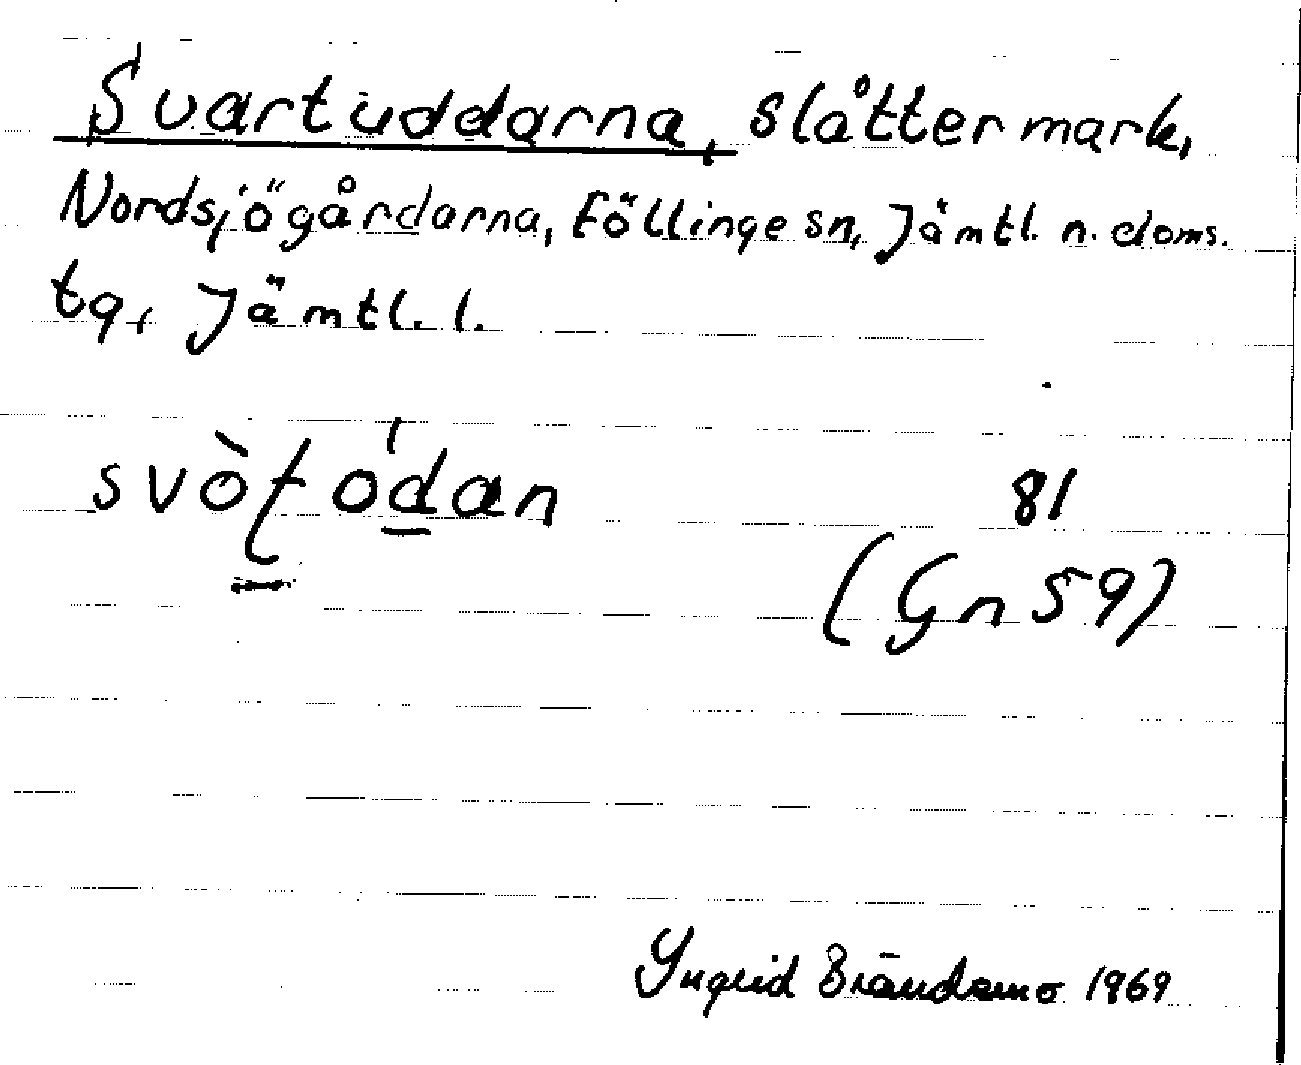 Svartuddarna, slåttermark,
Nordsjögårdarna, Föllinge sn, Jämtl. n. doms.
tg, Jämtl. l.
svò̱ṱo'ḏan 81
(Gn 59)
Yngvid Brändemo 1969